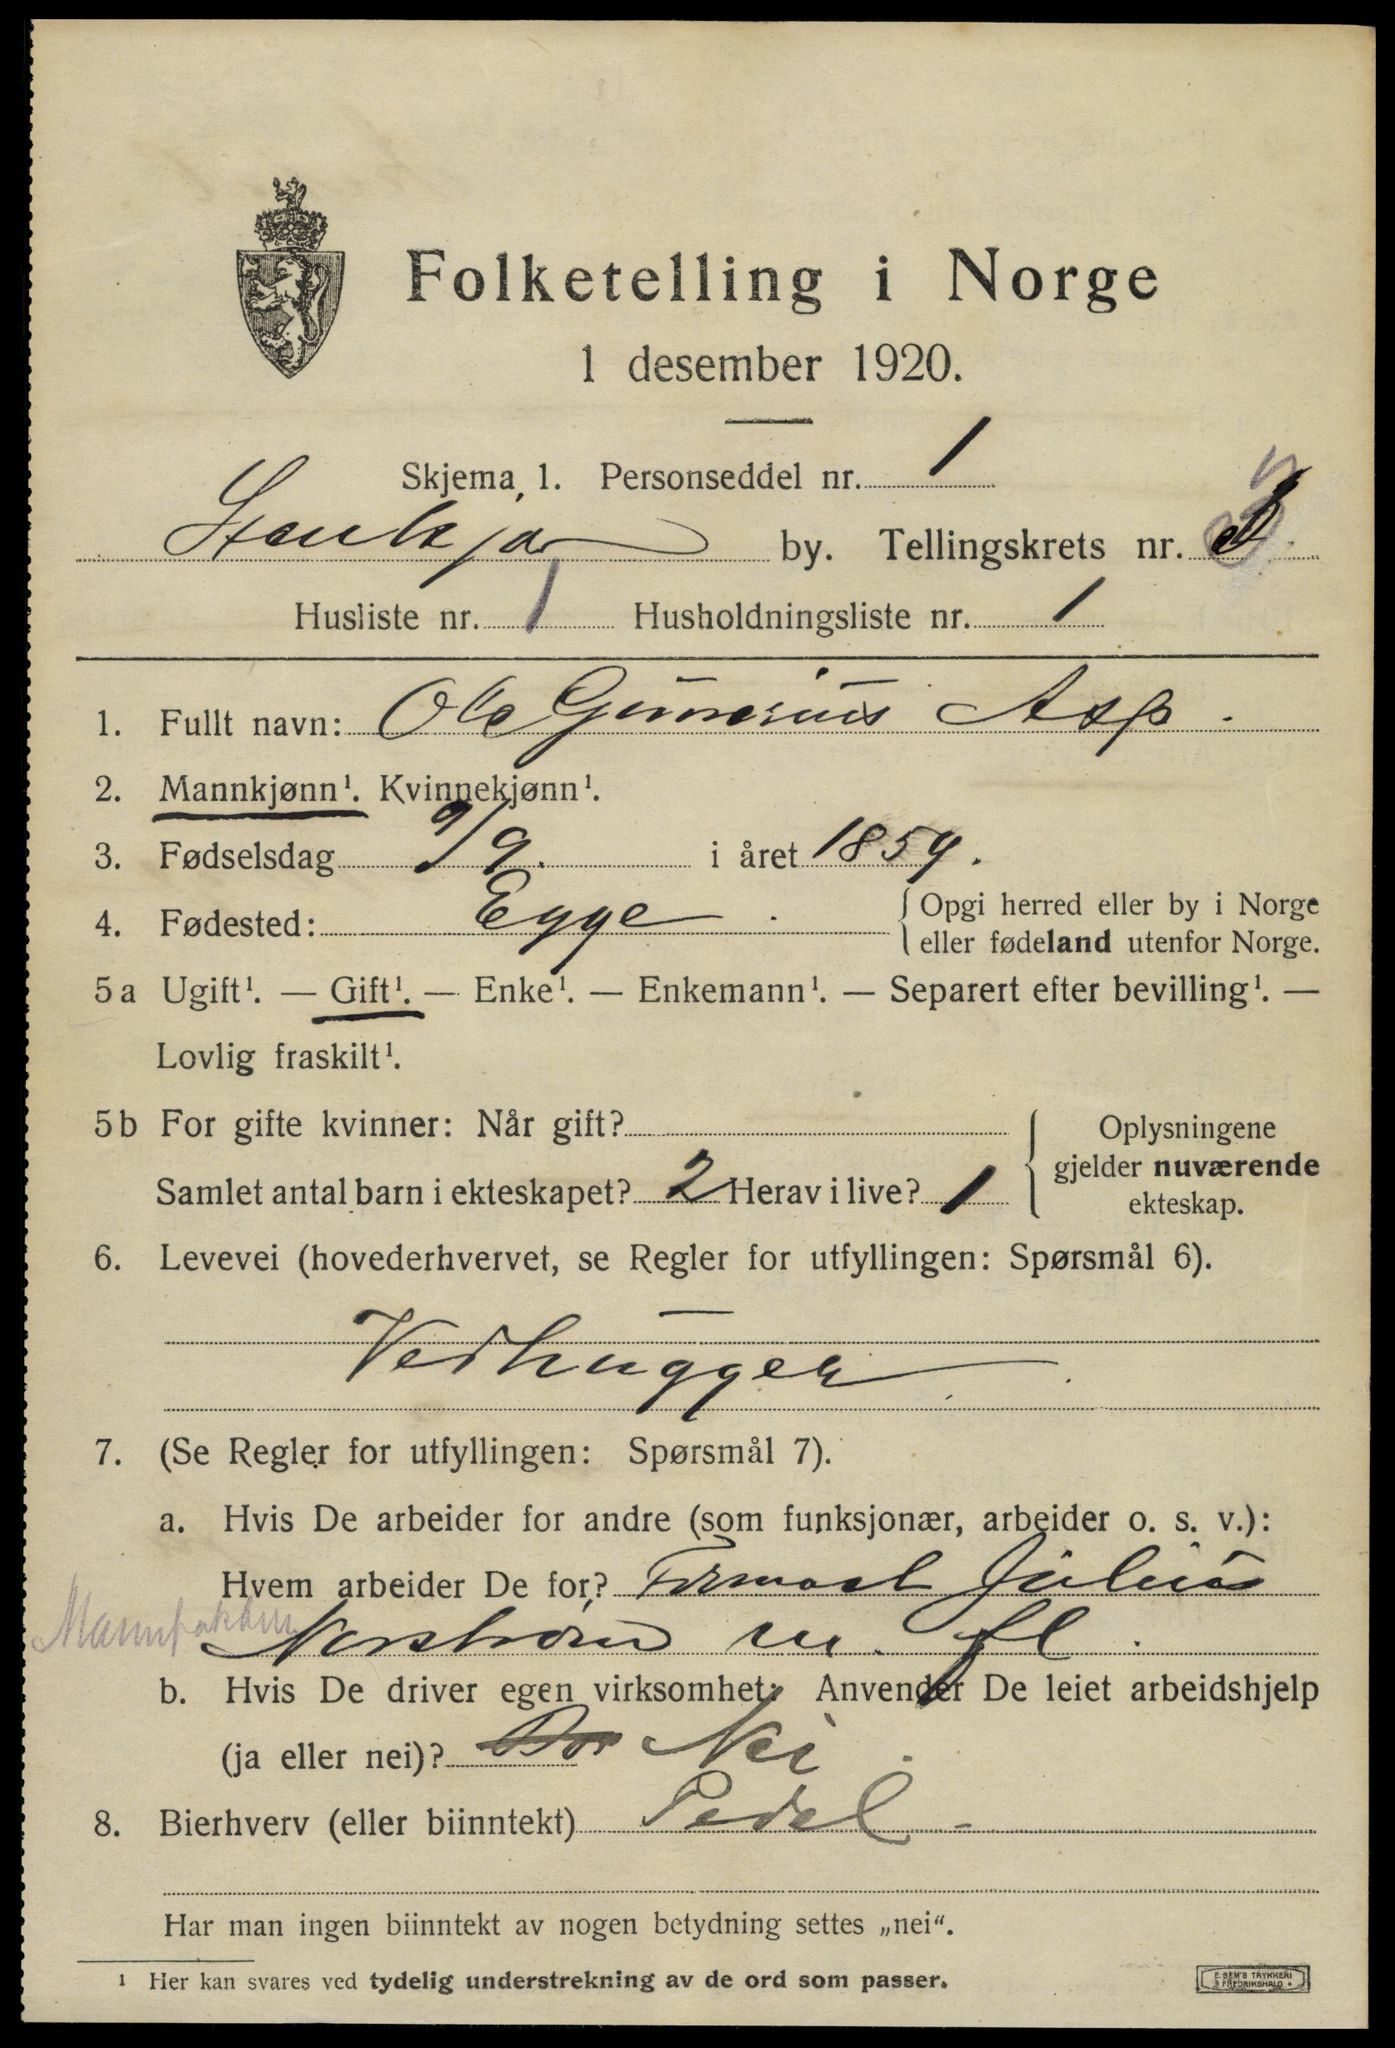 Folketelling i Norge
1 desember 1920.
Skjema 1. Personseddel nr. 1
Steinkjer by. Tellingskrets nr.
Husliste nr. 1 Husholdningsliste nr. 1
1. Fullt navn: Ole Gunerius Asp.
2. Mannkjønn¹. Kvinnekjønn¹.
3. Fødselsdag 9/9. i året 1859.
4. Fødested: Egge. { Opgi herred eller by i Norge
eller fødeland utenfor Norge.
5 a Ugift¹. — Gift¹. — Enke¹. — Enkemann¹. — Separert efter bevilling¹. —
Lovlig fraskilt¹.
5 b For gifte kvinner: Når gift?
Samlet antal barn i ekteskapet? 2 Herav i live? 1
Oplysningene
gjelder nuværende
ekteskap.
6. Levevei (hovederhvervet, se Regler for utfyllingen: Spørsmål 6).
Vedhugger
7. (Se Regler for utfyllingen: Spørsmål 7).
a. Hvis De arbeider for andre (som funksjonær, arbeider o. s. v.):
Hvem arbeider De for? Julius
m. fl.
b. Hvis De driver egen virksomhet: Anvender De leiet arbeidshjelp
(ja eller nei)? Nei.
8. Bierhverv (eller biinntekt) Pedel
Har man ingen biinntekt av nogen betydning settes „nei“.
¹ Her kan svares ved tydelig understrekning av de ord som passer.
E. SEM'S TRYKKERI
FREDRIKSHALD